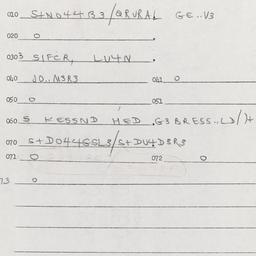 010 S+ND44B3/QRURAL GE..V3
020 O
030 SIFCR, LU4N
040 JO..M3R3 041 O
050 O 051
060 S KESSND HED .G3BRESS..
070 S+DO44GSL3/S+DU4D3R3
071 O 072 O
73 O